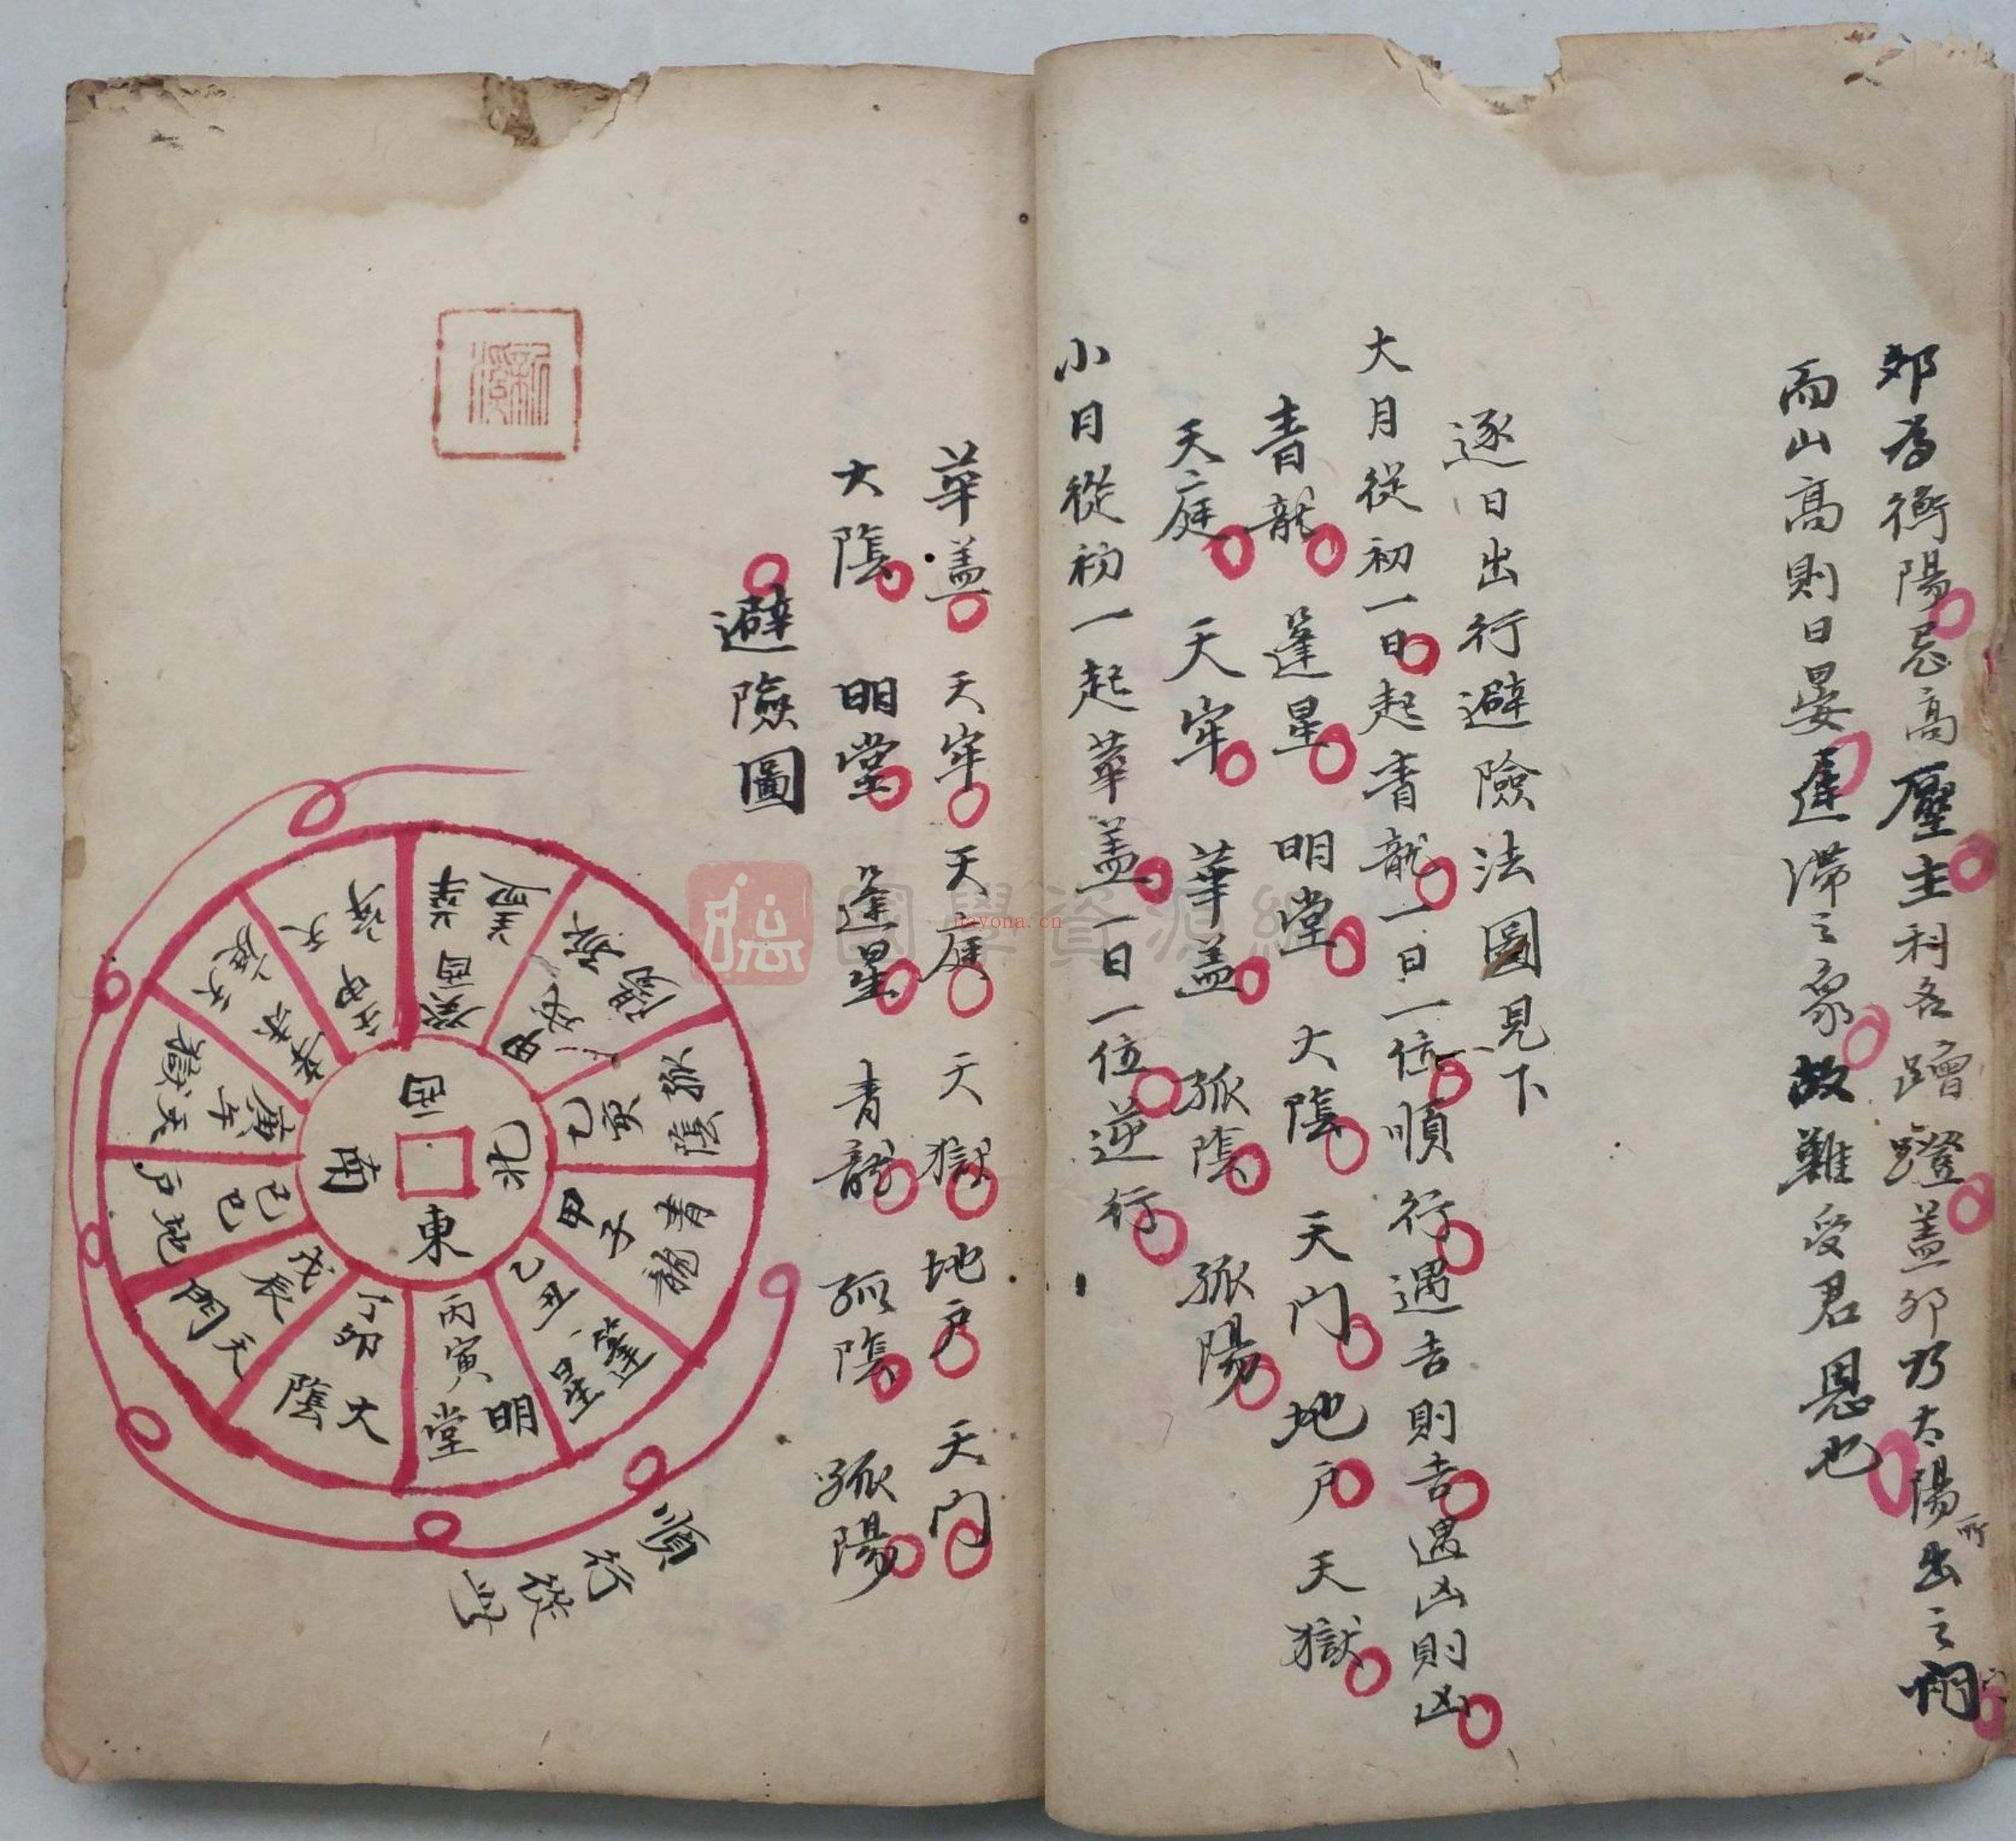 卯為衝陽忌高壓主利名蹭蹬蓋卯乃太陽所出之門
而山高則日晏遲滯之象故難受君恩也
逐日出行避險法圖見下
大月從初一日起青龍一日一位順行遇吉則吉遇凶則凶
青龍 蓬星 明堂 大陰 天门 地户 天獄
天庭 天牢 華盖 孤陰 孤陽
小月從初一起華盖一日一位逆行
華盖 天牢 天庭 天獄 地户 天门
大陰 明堂 蓬星 青龍 孤陰 孤陽
避險圖
西
北
東
南
甲子 青龍
乙丑 蓬星
丙寅 明堂
丁卯 大陰
戊辰 天門
己巳 地户
庚午 天獄
辛未 天庭
壬申 天牢
癸酉 華盖
孤陽
孤陰
順行從此
國學資源網
nayona.cn